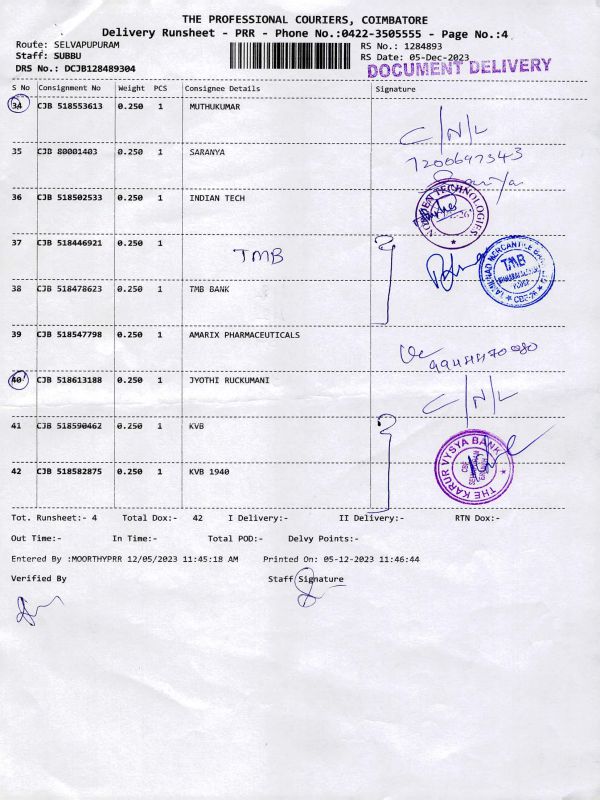 THE PROFESSIONAL COURIERS, COIMBATORE
Delivery Runsheet - PRR - Phone No.:0422-3505555 - Page No.:4
Route: SELVAPUPURAM RS No.: 1284893
Staff: SUBBU RS Date: 05-Dec-2023
DRS No.: DCJB128489304 DOCUMENT DELIVERY
S No Consignment No Weight PCS Consignee Details Signature
34 CJB 518553613 0.250 1 MUTHUKUMAR C/N/L
35 CJB 80001403 0.250 1 SARANYA 7200697343
36 CJB 518502533 0.250 1 INDIAN TECH
37 CJB 518446921 0.250 1 TMB
TMB
38 CJB 518478623 0.250 1 TMB BANK
39 CJB 518547798 0.250 1 AMARIX PHARMACEUTICALS
40 CJB 518613188 0.250 1 JYOTHI RUCKUMANI C/N/L
41 CJB 518590462 0.250 1 KVB
THE KARUR VYSYA BANK
42 CJB 518582875 0.250 1 KVB 1940
Tot. Runsheet:- 4 Total Dox:- 42 I Delivery:- II Delivery:- RTN Dox:-
Out Time:- In Time:- Total POD:- Delvy Points:-
Entered By :MOORTHYPRR 12/05/2023 11:45:18 AM Printed On: 05-12-2023 11:46:44
Verified By Staff Signature